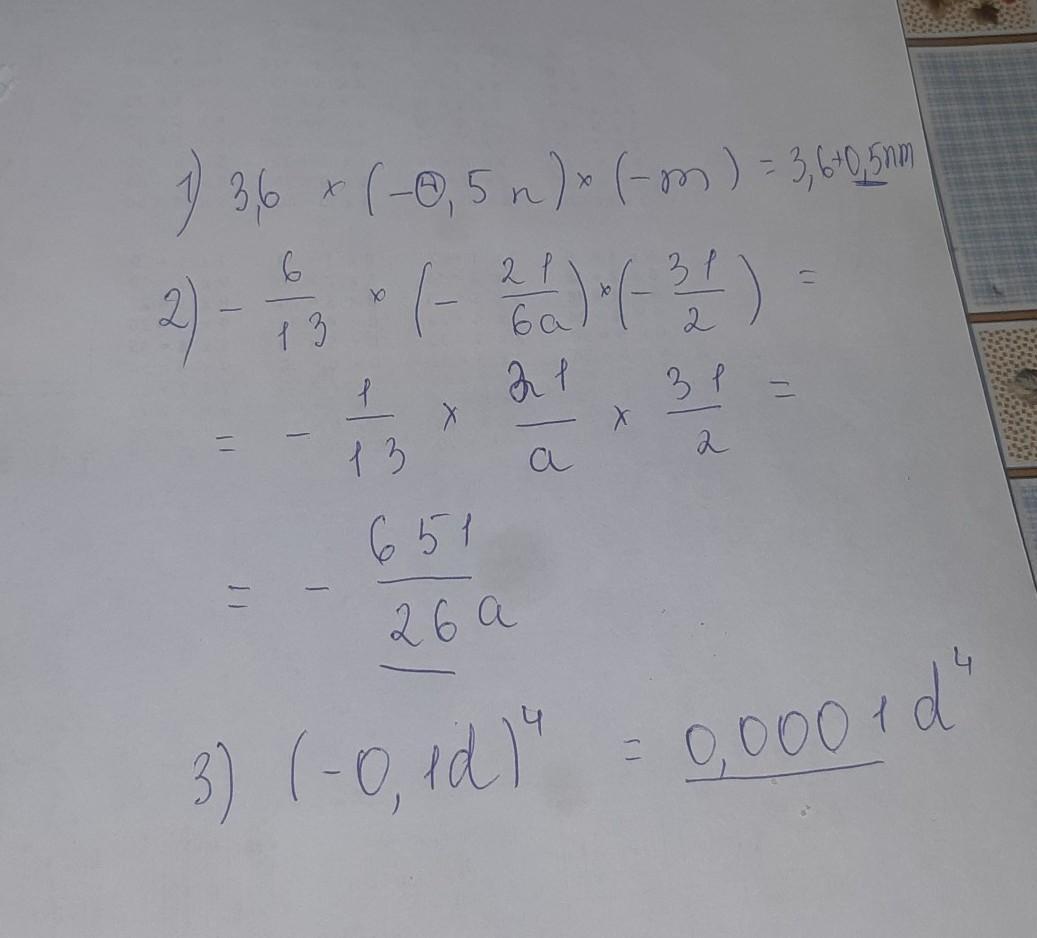 1) 3,6 × (-0,5 n) × (-m) = 3,6+0,5nm
2) - 6/13 × (- 21/6a) × (- 31/2) =
= - 1/13 × 21/a × 31/2 =
= - 651/26a
3) (-0,1d)⁴ = 0,0001d⁴